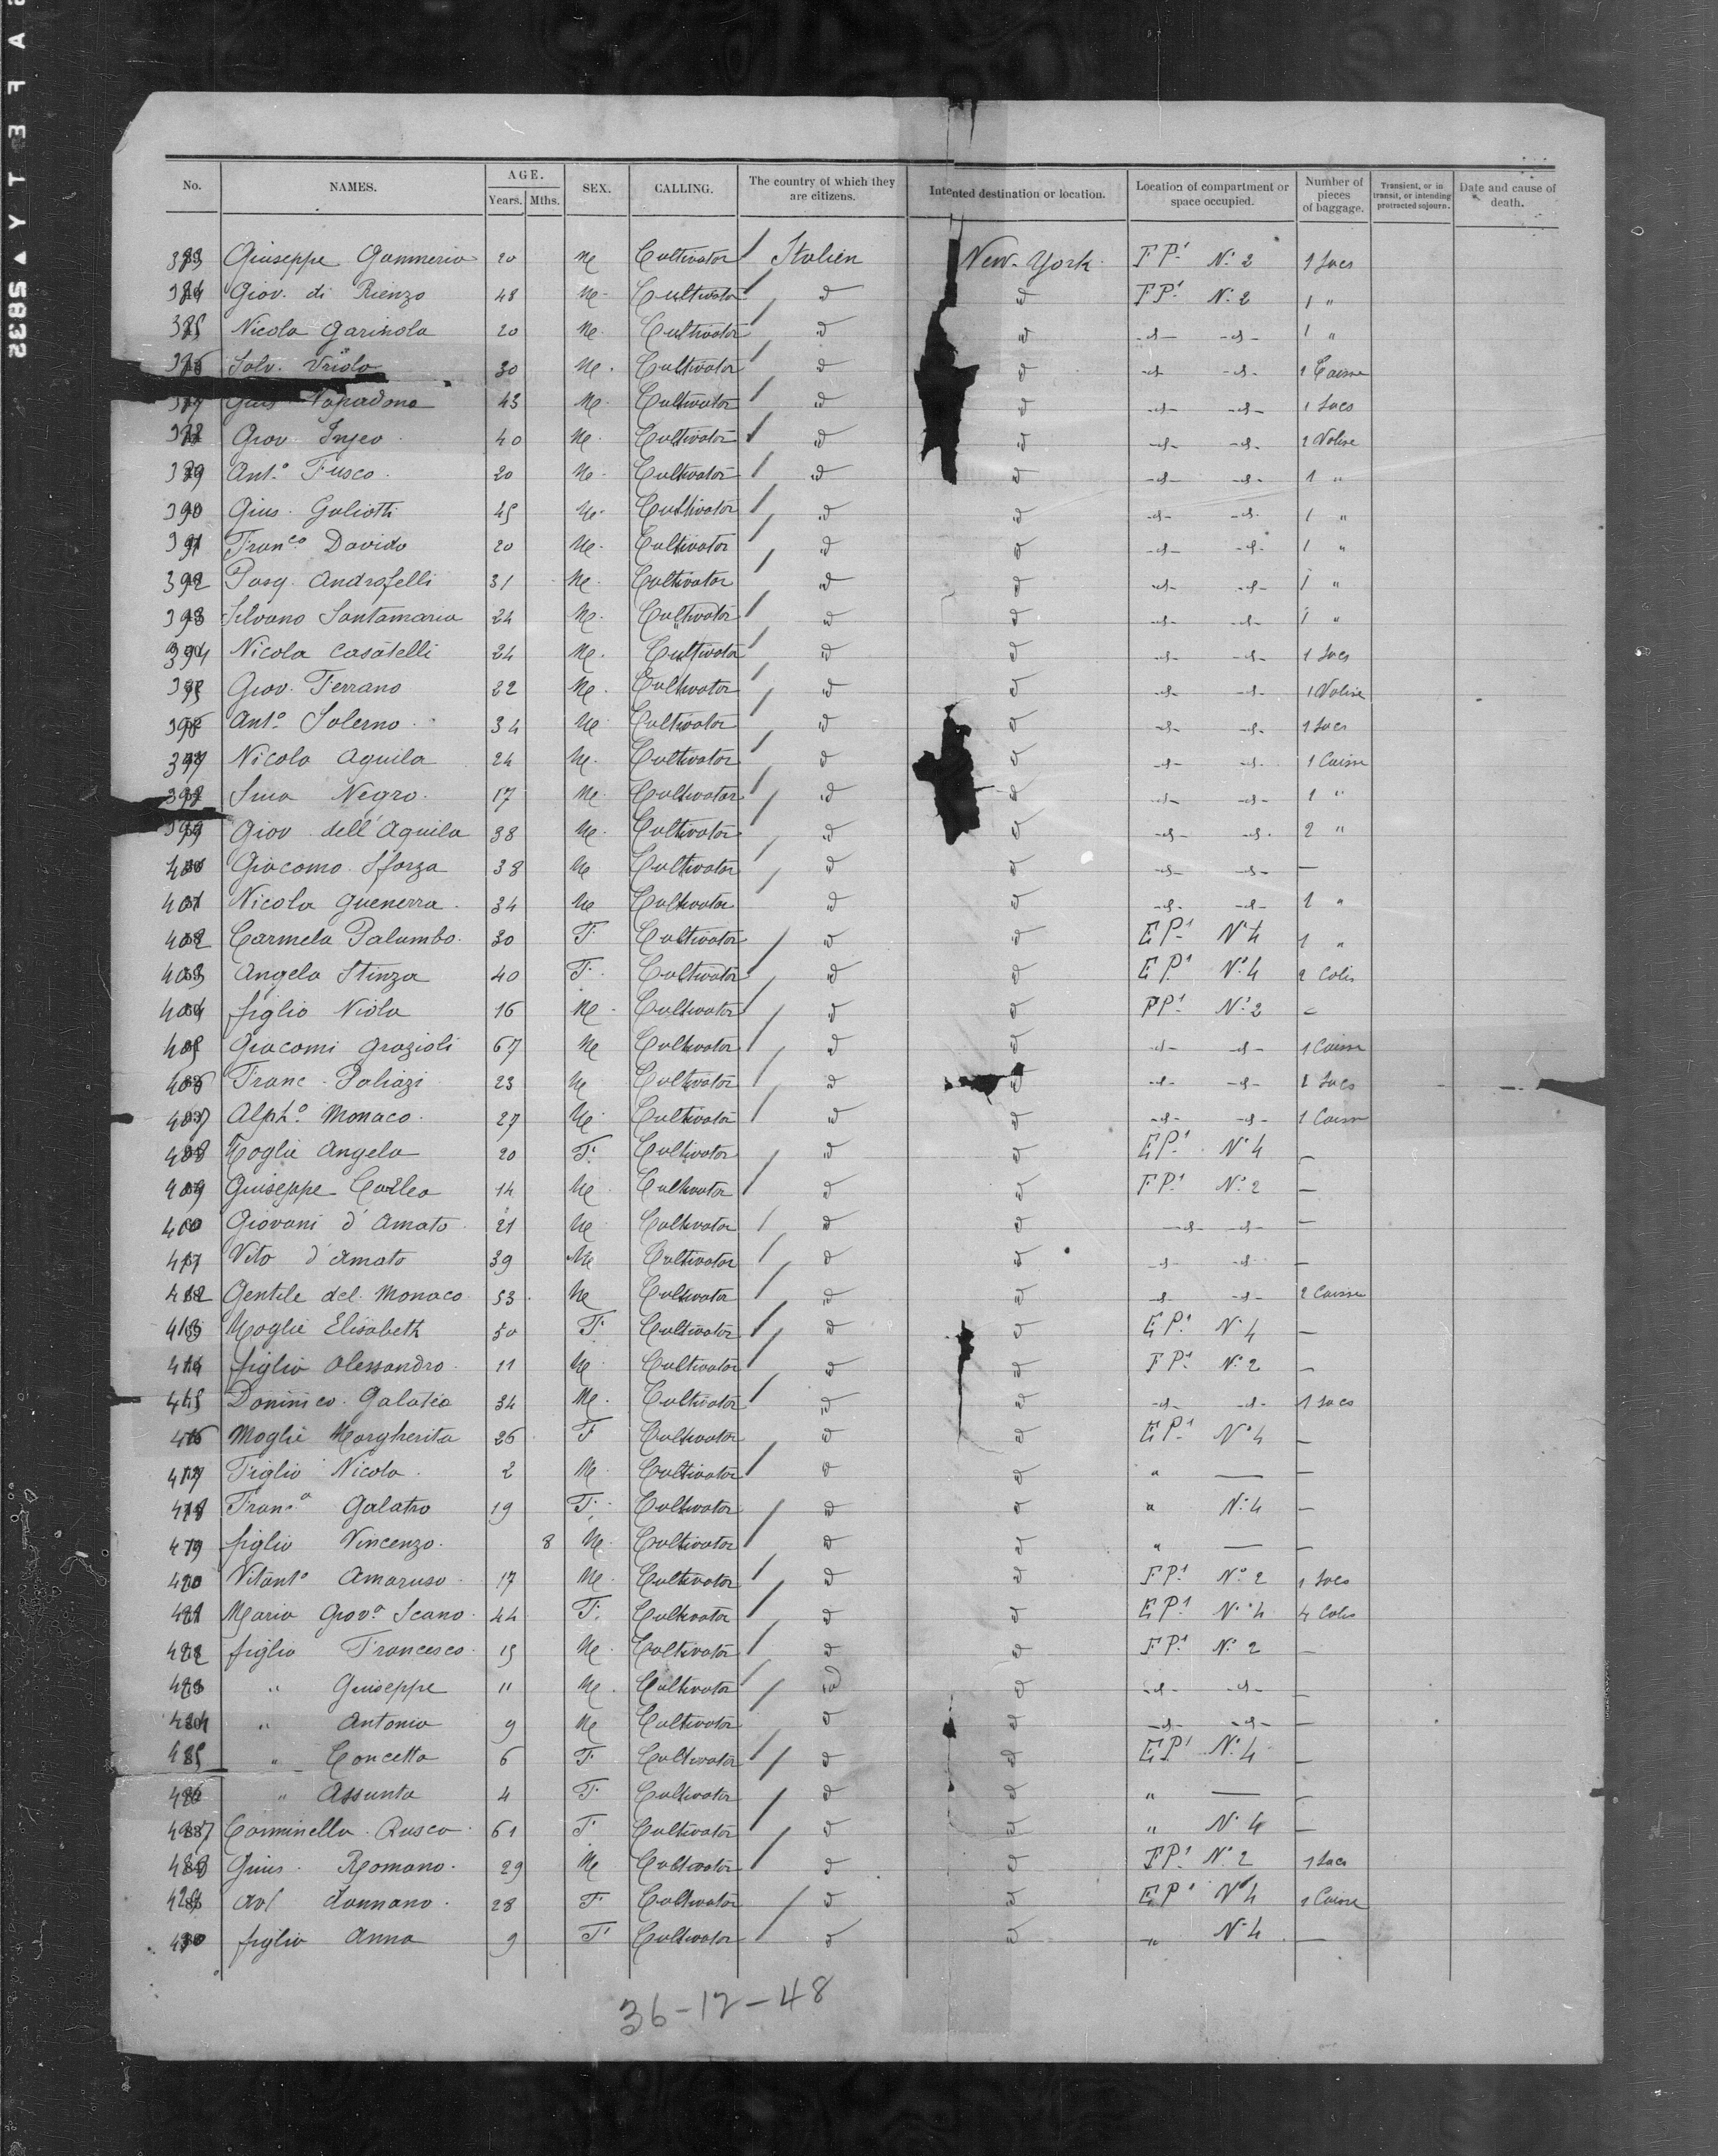 No. NAMES. AGE. Years. Mths. SEX. CALLING. The country of which they are citizens. Intented destination or location. Location of compartment or space occupied. Number of pieces of baggage. Transient, or in transit, or intending protracted sojourn. Date and cause of death.
Giuseppe 20 M Cultivator Italien New-York FP.1 N.2 1 Sacs
Giov. di Rienzo 48 M Cultivator d d FP.1 N.2 1 "
Nicola 20 M. Cultivator d d -d- -d- 1 "
Salv. 30 M. Cultivator d d -d- -d- 1 Caisse
43 M. Cultivator d d -d- -d- 1 Sacs
Giov 40 M. Cultivator d d -d- -d- 1 Valise
Ant.o Fusco 20 M. Cultivator d d -d- -d- 1 "
390 Gius. Galiotti 45 M. Cultivator d d -d- -d- 1 "
391 Franc.o Davido 20 M. Cultivator d d -d- -d- 1 "
392 Pasq. 31 M. Cultivator d d -d- -d- 1 "
393 Silvano Santamaria 24 M. Cultivator d d -d- -d- 1 "
394 Nicola Casatelli 24 M. Cultivator d d -d- -d- 1 Sacs
395 Giov. Ferrano 22 M. Cultivator d d -d- -d- 1 Valise
396 Ant.o Salerno 34 M Cultivator d d -d- -d- 1 Sacs
397 Nicola Aquila 24 M. Cultivator d d -d- -d- 1 Caisse
Negro 17 M. Cultivator d d -d- -d- 1 "
399 Giov. dell' Aquila 38 M. Cultivator d d -d- -d- 2 "
400 Giacomo Sforza 38 M Cultivator d d -d- -d- —
401 Nicola Guenerra 34 M Cultivator d d -d- -d- 1 "
402 Carmela Palumbo 30 F Cultivator d d EP.1 N.4 1 "
403 Angela Stinza 40 F. Cultivator d d EP.1 N.4 2 Colis
404 figlio Viola 16 M Cultivator d d FP.1 N.2 -
405 Giacomi Grazioli 67 M Cultivator d d -d- -d- 1 Caisse
406 Franc. 23 M Cultivator d d -d- -d- 1 Sacs
407 Alph.o Monaco 27 M. Cultivator d d -d- -d- 1 Caisse
408 Moglie Angela 20 F. Cultivator d d EP.1 N.4 —
409 Guiseppe 14 M. Cultivator d d FP.1 N.2 —
410 Giovani d' Amato 21 M Cultivator d d -d- -d- —
411 Vito d'amato 39 M Cultivator d d -d- -d- —
412 Gentile del Monaco 53 M Cultivator d d -d- -d- 2 Caisse
413 Moglie Elisabeth 50 F. Cultivator d d EP.1 N.4 —
414 figlio Alessandro 11 M. Cultivator d d FP.1 N.2 —
415 Dominico 34 M. Cultivator d d -d- -d- 1 Sacs
416 Moglie Margherita 26 F Cultivator d d EP.1 N.4 —
417 Figlio Nicola 2 M. Cultivator d d " — —
418 Franc.a Galatro 19 F. Cultivator d d " N.4 —
419 figlio Vincenzo. 8 M. Cultivator d d " — —
420 Vitant.o Amaruso 17 M. Cultivator d d FP.1 N.o 2 1 Sacs
421 Maria Giov.a Scano 44 F. Cultivator d d EP.1 N.4 4 Colis
422 figlio Francesco 15 M. Cultivator d d FP.1 N.2 —
423 " Guiseppe 11 M. Cultivator d d -d- -d- —
424 " Antonio 9 M Cultivator d d -d- -d- —
425 " Concetta 6 F Cultivator d d EP1 N.4 —
426 " Assunta 4 F Cultivator d d " — —
427 Carminella Rusco 61 F Cultivator d d " N.4 —
428 Gius. Romano. 29 M Cultivator d d FP.1 N.2 1 Sacs
429 28 F Cultivator d d EP.1 N.4 1 Caisse
430 figlio Anna 9 F Cultivator d d " N.4 —
36-12-48